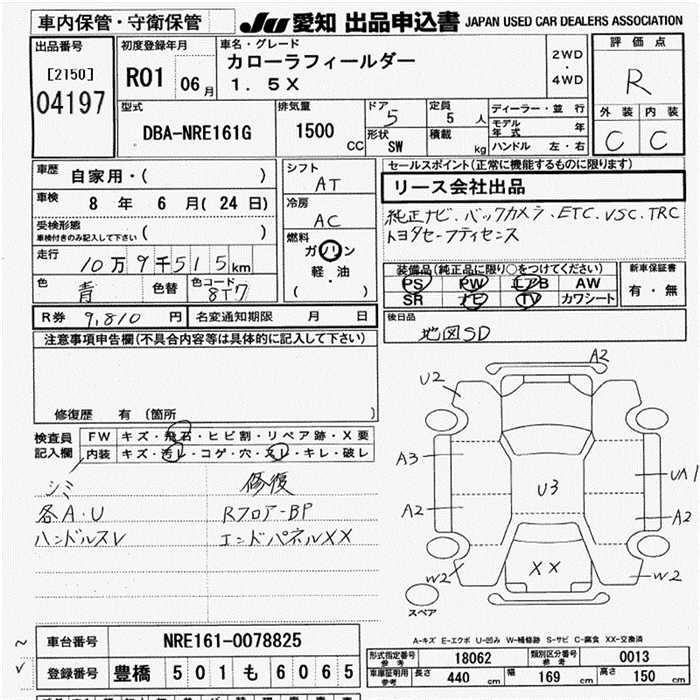 車内保管・守衛保管
JU 愛知 出品申込書 JAPAN USED CAR DEALERS ASSOCIATION
出品番号
[2150]
04197
初度登録年月
R01 06月
車名・グレード
カローラフィールダー
1.5X
2WD
・
4WD
評価点
R
外装 内装
C C
型式
DBA-NRE161G
排気量
1500
CC
ドア
5
定員
5 人
形状
SW
積載
kg
ディーラー・並行
モデル年式 年
ハンドル 左・右
車歴 自家用・( )
車検 8年 6月(24日)
受検形態
車検付きのみ記入して下さい ( )
走行 10万9千515km
色 青 色替 色コード 8T7
シフト
AT
冷房
AC
燃料
ガソリン
・
軽・油
( )
セールスポイント(正常に機能するものに限ります)
リース会社出品
純正ナビ、バックカメラ、ETC、VSC、TRC
トヨタセーフティセンス
装備品(純正品に限り○をつけてください)
PS PW エアB AW
SR ナビ TV カワシート
新車保証書
有・無
R券 9,810円 名変通知期限 月 日
後日品
地図SD
注意事項申告欄(不具合内容等は具体的に記入して下さい)
修復歴 有(箇所 )
検査員
記入欄
FW キズ・飛石・ヒビ割・リペア跡・X要
内装 キズ・汚レ・コゲ・穴・スレ・キレ・破レ
シミ
各A・U
ハンドルスレ
修復
Rフロア-BP
エンドパネルXX
A2
U2
A3
A2
U3
UA1
A2
XX
W2
W2
スペア
A-キズ E-エクボ U-凹み W-補修跡 S-サビ C-腐食 XX-交換済
車台番号 NRE161-0078825
登録番号 豊橋 501 も 6065
形式指定番号
参考
18062
類別区分番号
参考
0013
車庫証明用
参考
長さ 440 cm 幅 169 cm 高さ 150 cm